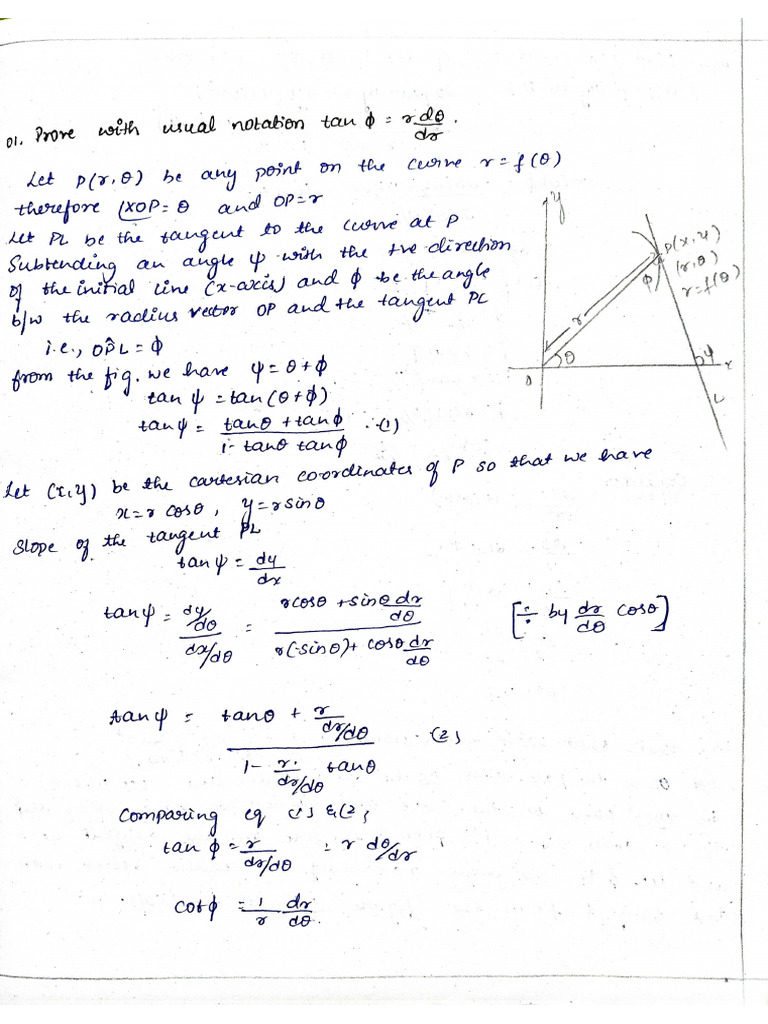 01. Prove with usual notation tan φ = r dθ/dr.
Let P(r, θ) be any point on the curve r = f(θ)
therefore ∠XOP = θ and OP = r
Let PL be the tangent to the curve at P
Subtending an angle ψ with the +ve direction
of the initial line (x-axis) and φ be the angle
b/w the radius vector OP and the tangent PL
i.e., OP̂L = φ
from the fig. we have ψ = θ + φ
tan ψ = tan (θ + φ)
tan ψ = (tan θ + tan φ)/(1 - tan θ tan φ) ..(1)
y
P(x, y)
(r, θ)
r = f(θ)
φ
r
θ
ψ
x
O
L
Let (x, y) be the cartesian co-ordinates of P so that we have
x = r cos θ, y = r sin θ
Slope of the tangent PL
tan ψ = dy/dx
tan ψ = (dy/dθ)/(dx/dθ) = (r cos θ + sin θ dr/dθ)/(r(-sin θ) + cos θ dr/dθ) [÷ by dr/dθ cos θ]
tan ψ = (tan θ + r/(dr/dθ))/(1 - r/(dr/dθ) tan θ) ..(2)
Comparing eq (1) & (2)
tan φ = r/(dr/dθ) = r dθ/dr
cot φ = 1/r dr/dθ.